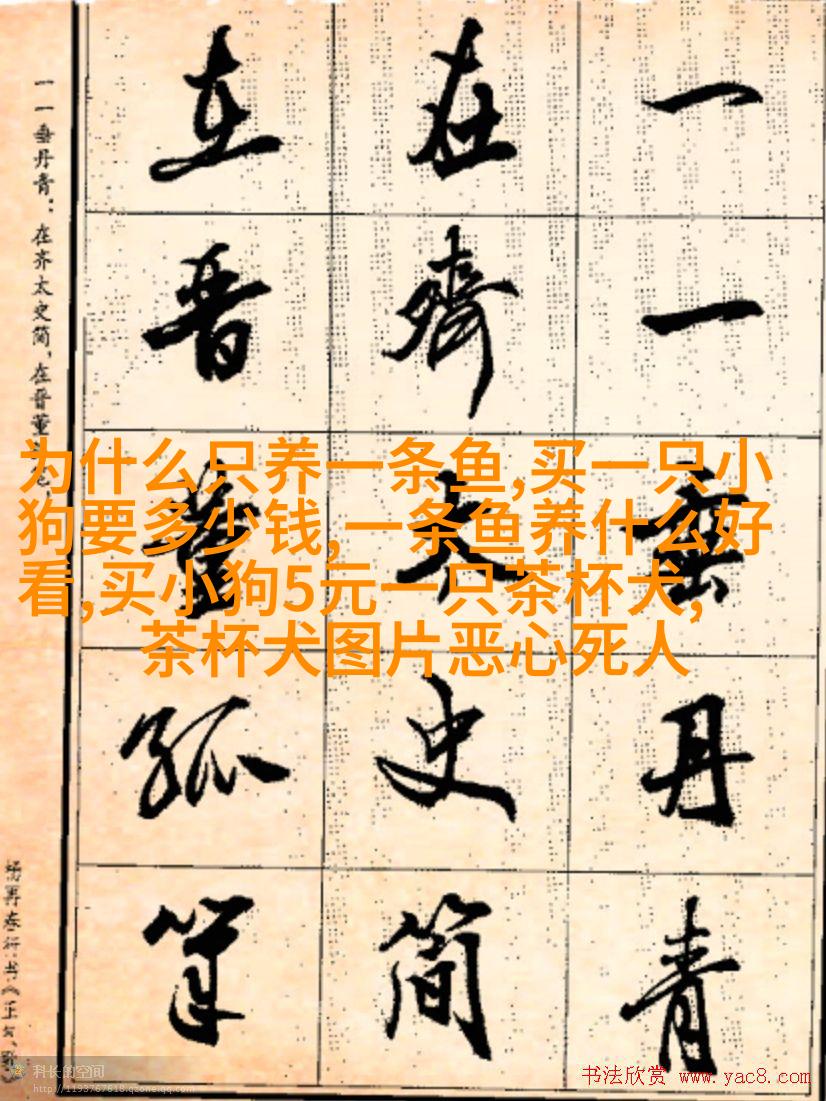 一一垂丹青
在齊太史简
在晋董狐筆
一一垂丹青：在齐太史简，在晋董
杨再春行书《正气歌
为什么只养一条鱼,买一只小
狗要多少钱,一条鱼养什么好
看,买小狗5元一只茶杯犬,
茶杯犬图片恶心死人
科长的空间
http://1193767618.qzone.qq.com
书法欣赏 www.yac8.com